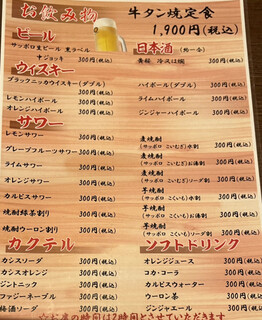 お飲み物
牛タン焼定食
1,900円(税込)
ビール
サッポロ生ビール 黒ラベル
中ジョッキ 300円(税込)
日本酒
300円(税込)
ウイスキー
ブラックニッカウイスキー(ダブル)
300円(税込)
ハイボール(ダブル) 300円(税込)
レモンハイボール 300円(税込)
ライムハイボール 300円(税込)
オレンジハイボール 300円(税込)
ジンジャーハイボール 300円(税込)
サワー
レモンサワー 300円(税込)
グレープフルーツサワー 300円(税込)
ライムサワー 300円(税込)
オレンジサワー 300円(税込)
カルピスサワー 300円(税込)
焼酎緑茶割り 300円(税込)
焼酎ウーロン割り 300円(税込)
麦焼酎
(サッポロ こいむぎ)水割 300円(税込)
麦焼酎
(サッポロ こいむぎ)お湯割 300円(税込)
麦焼酎
(サッポロ こいむぎ)ソーダ割 300円(税込)
芋焼酎
(サッポロ こくいも)水割 300円(税込)
芋焼酎
(サッポロ こくいも)お湯割 300円(税込)
芋焼酎
(サッポロ こくいも)ソーダ割 300円(税込)
カクテル
カシスソーダ 300円(税込)
カシスオレンジ 300円(税込)
ジントニック 300円(税込)
ファジーネーブル 300円(税込)
梅酒ソーダ 300円(税込)
ソフトドリンク
オレンジジュース 300円(税込)
コカ・コーラ 300円(税込)
カルピスウォーター 300円(税込)
ウーロン茶 300円(税込)
ジンジャエール 300円(税込)
☆お席の時間は2時間とさせていただきます